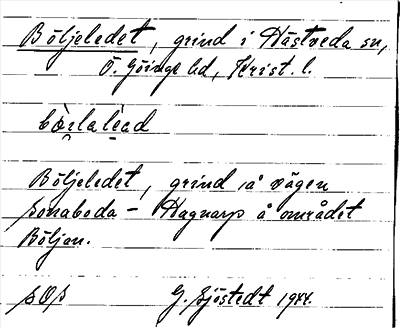 Böljeledet, grind i Hästveda sn,
Ö. Göinge hd, Krist. l.
Böljeledet, grind å vägen
Sonaboda - Hagnarp å området
Böljan.
SOS G. Sjöstedt 1944.